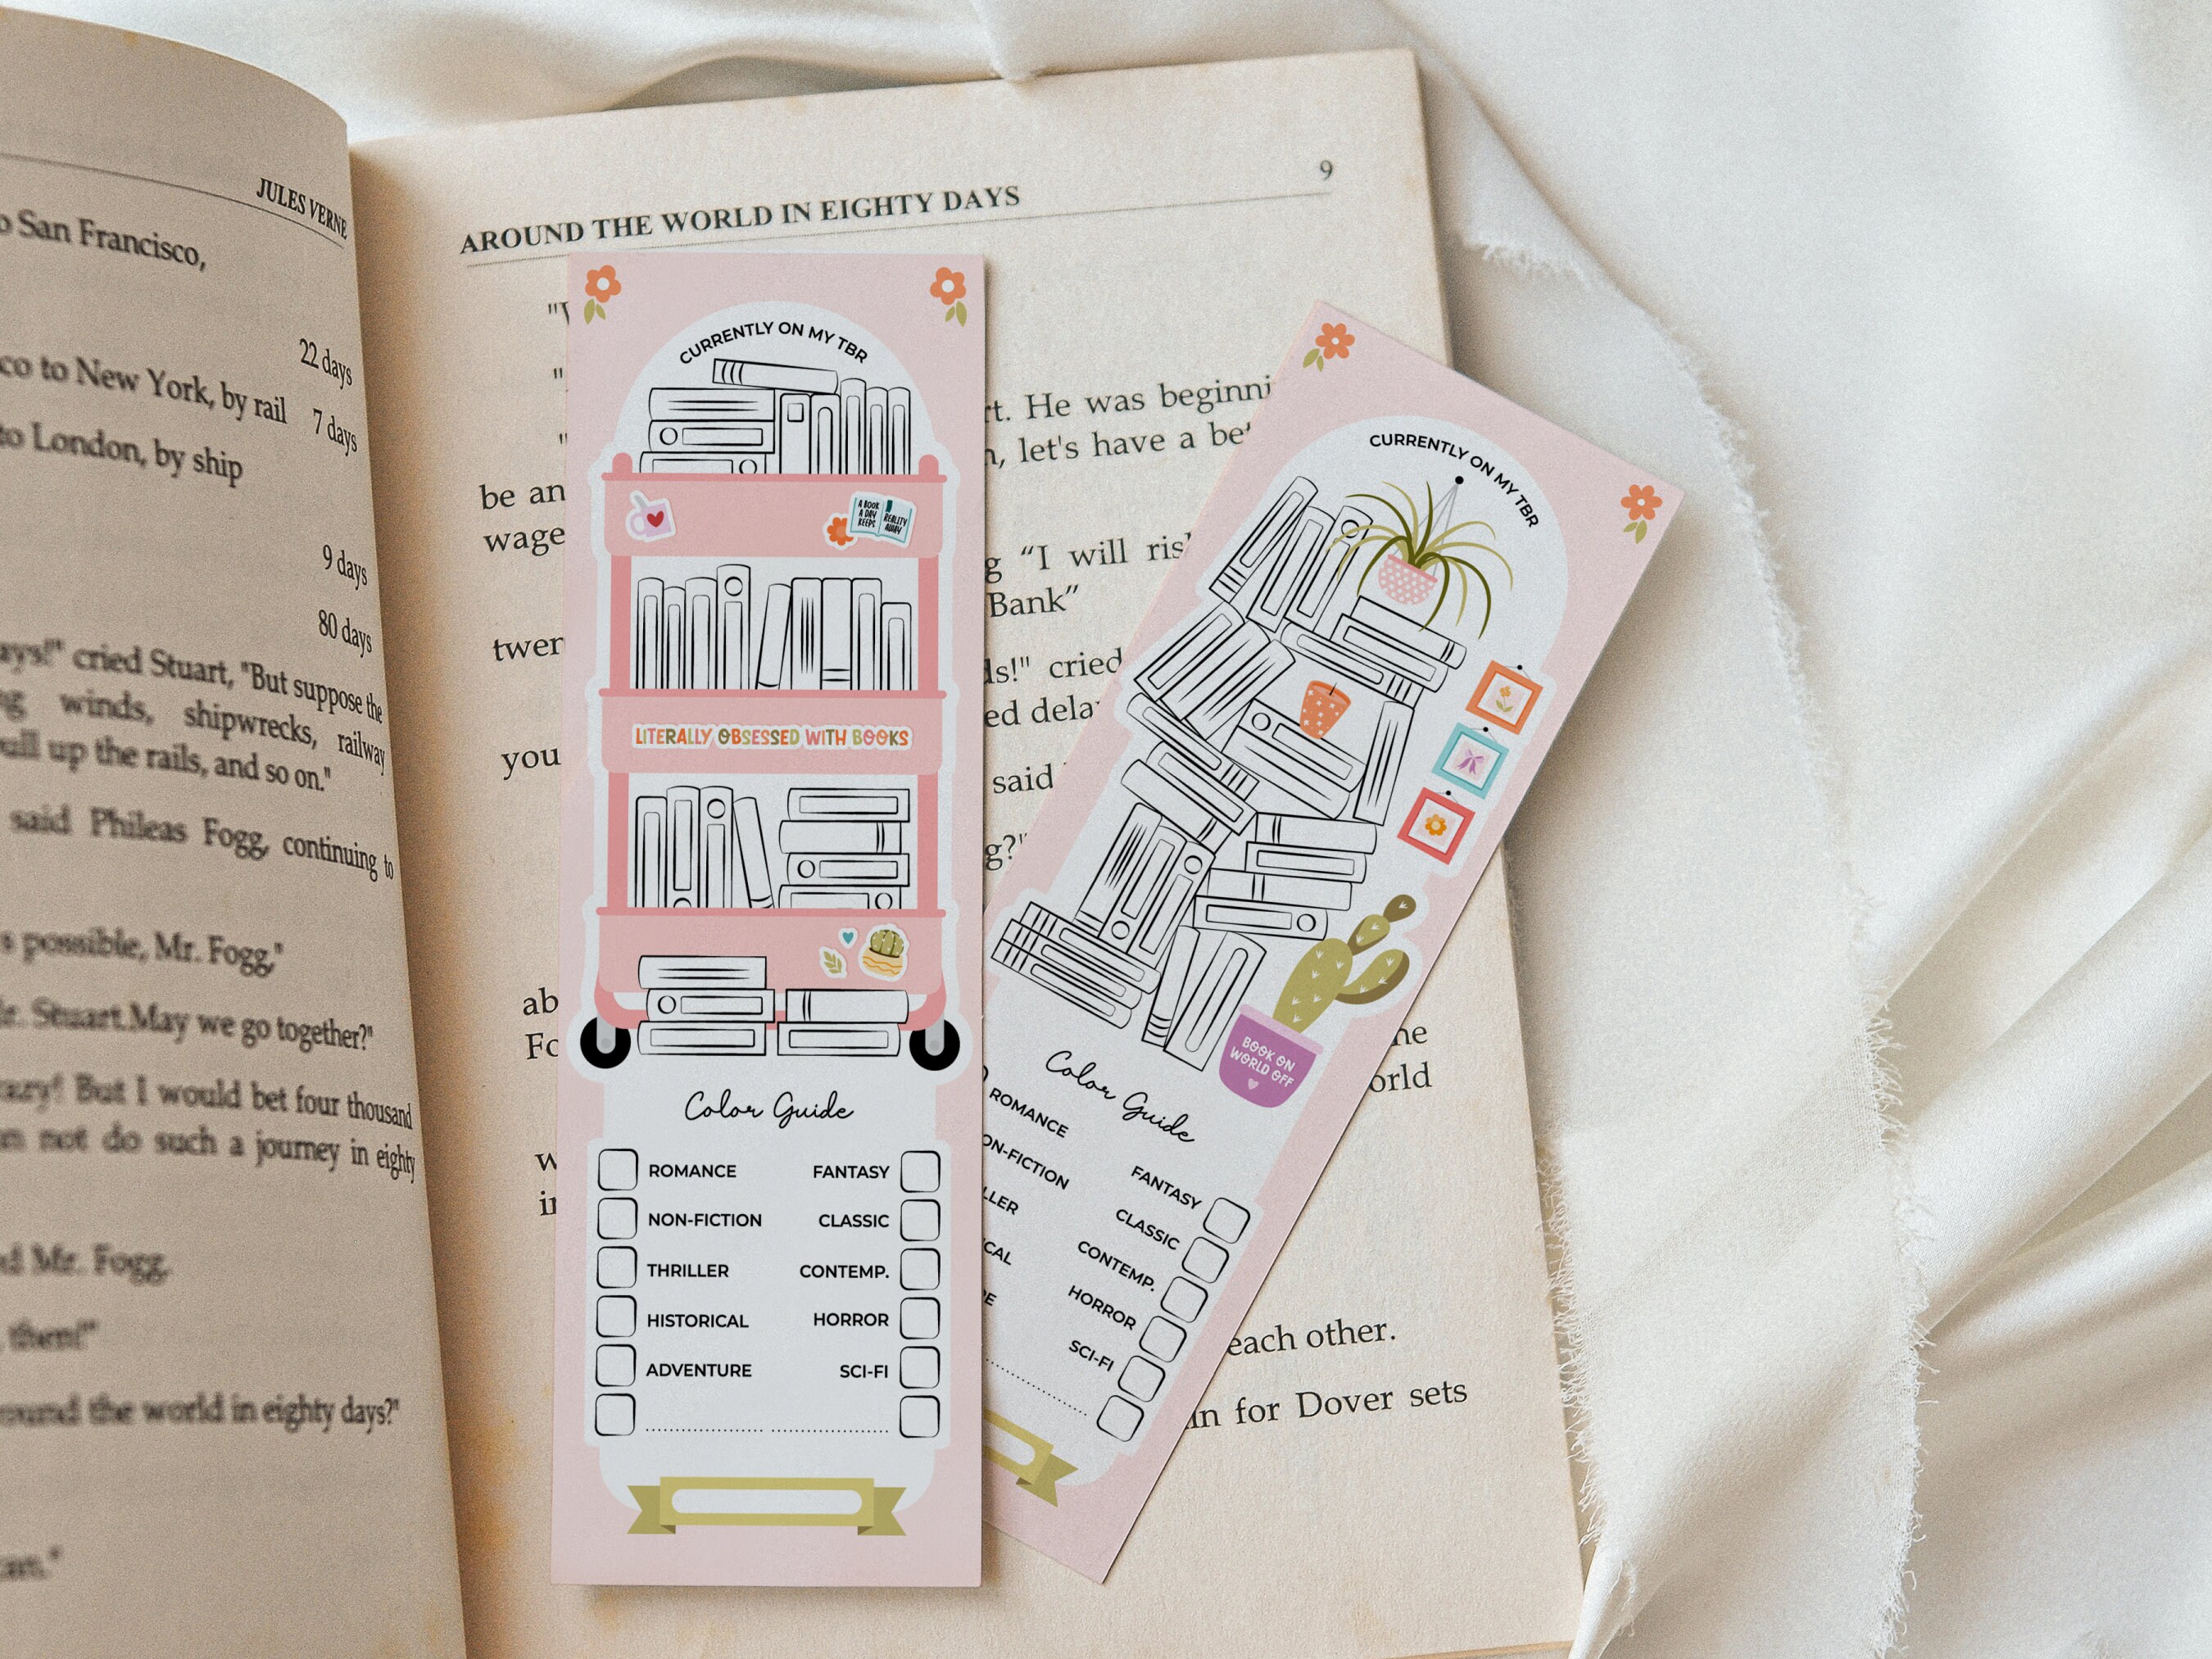 JULES VERNE
o San Francisco,
22 days
co to New York, by rail 7 days
to London, by ship
9 days
80 days
ays!" cried Stuart, "But suppose the
ng winds, shipwrecks, railway
pull up the rails, and so on."
said Phileas Fogg, continuing to
s possible, Mr. Fogg."
Mr. Stuart.May we go together?"
crazy! But I would bet four thousand
an not do such a journey in eighty
nd Mr. Fogg.
, them!"
around the world in eighty days?"
AROUND THE WORLD IN EIGHTY DAYS
9
rt. He was beginni
n, let's have a bet
be an
wage
g “I will risk
Bank”
twen
ds!" cried
ed delay
you
said
g?"
ab
Fo
he
orld
w
in
each other.
in for Dover sets
CURRENTLY ON MY TBR
A BOOK
A DAY
KEEPS
REALITY
AWAY
LITERALLY OBSESSED WITH BOOKS
Color Guide
ROMANCE FANTASY
NON-FICTION CLASSIC
THRILLER CONTEMP.
HISTORICAL HORROR
ADVENTURE SCI-FI
CURRENTLY ON MY TBR
BOOK ON
WORLD OFF
Color Guide
ROMANCE FANTASY
ON-FICTION CLASSIC
LLER CONTEMP.
ICAL HORROR
RE SCI-FI